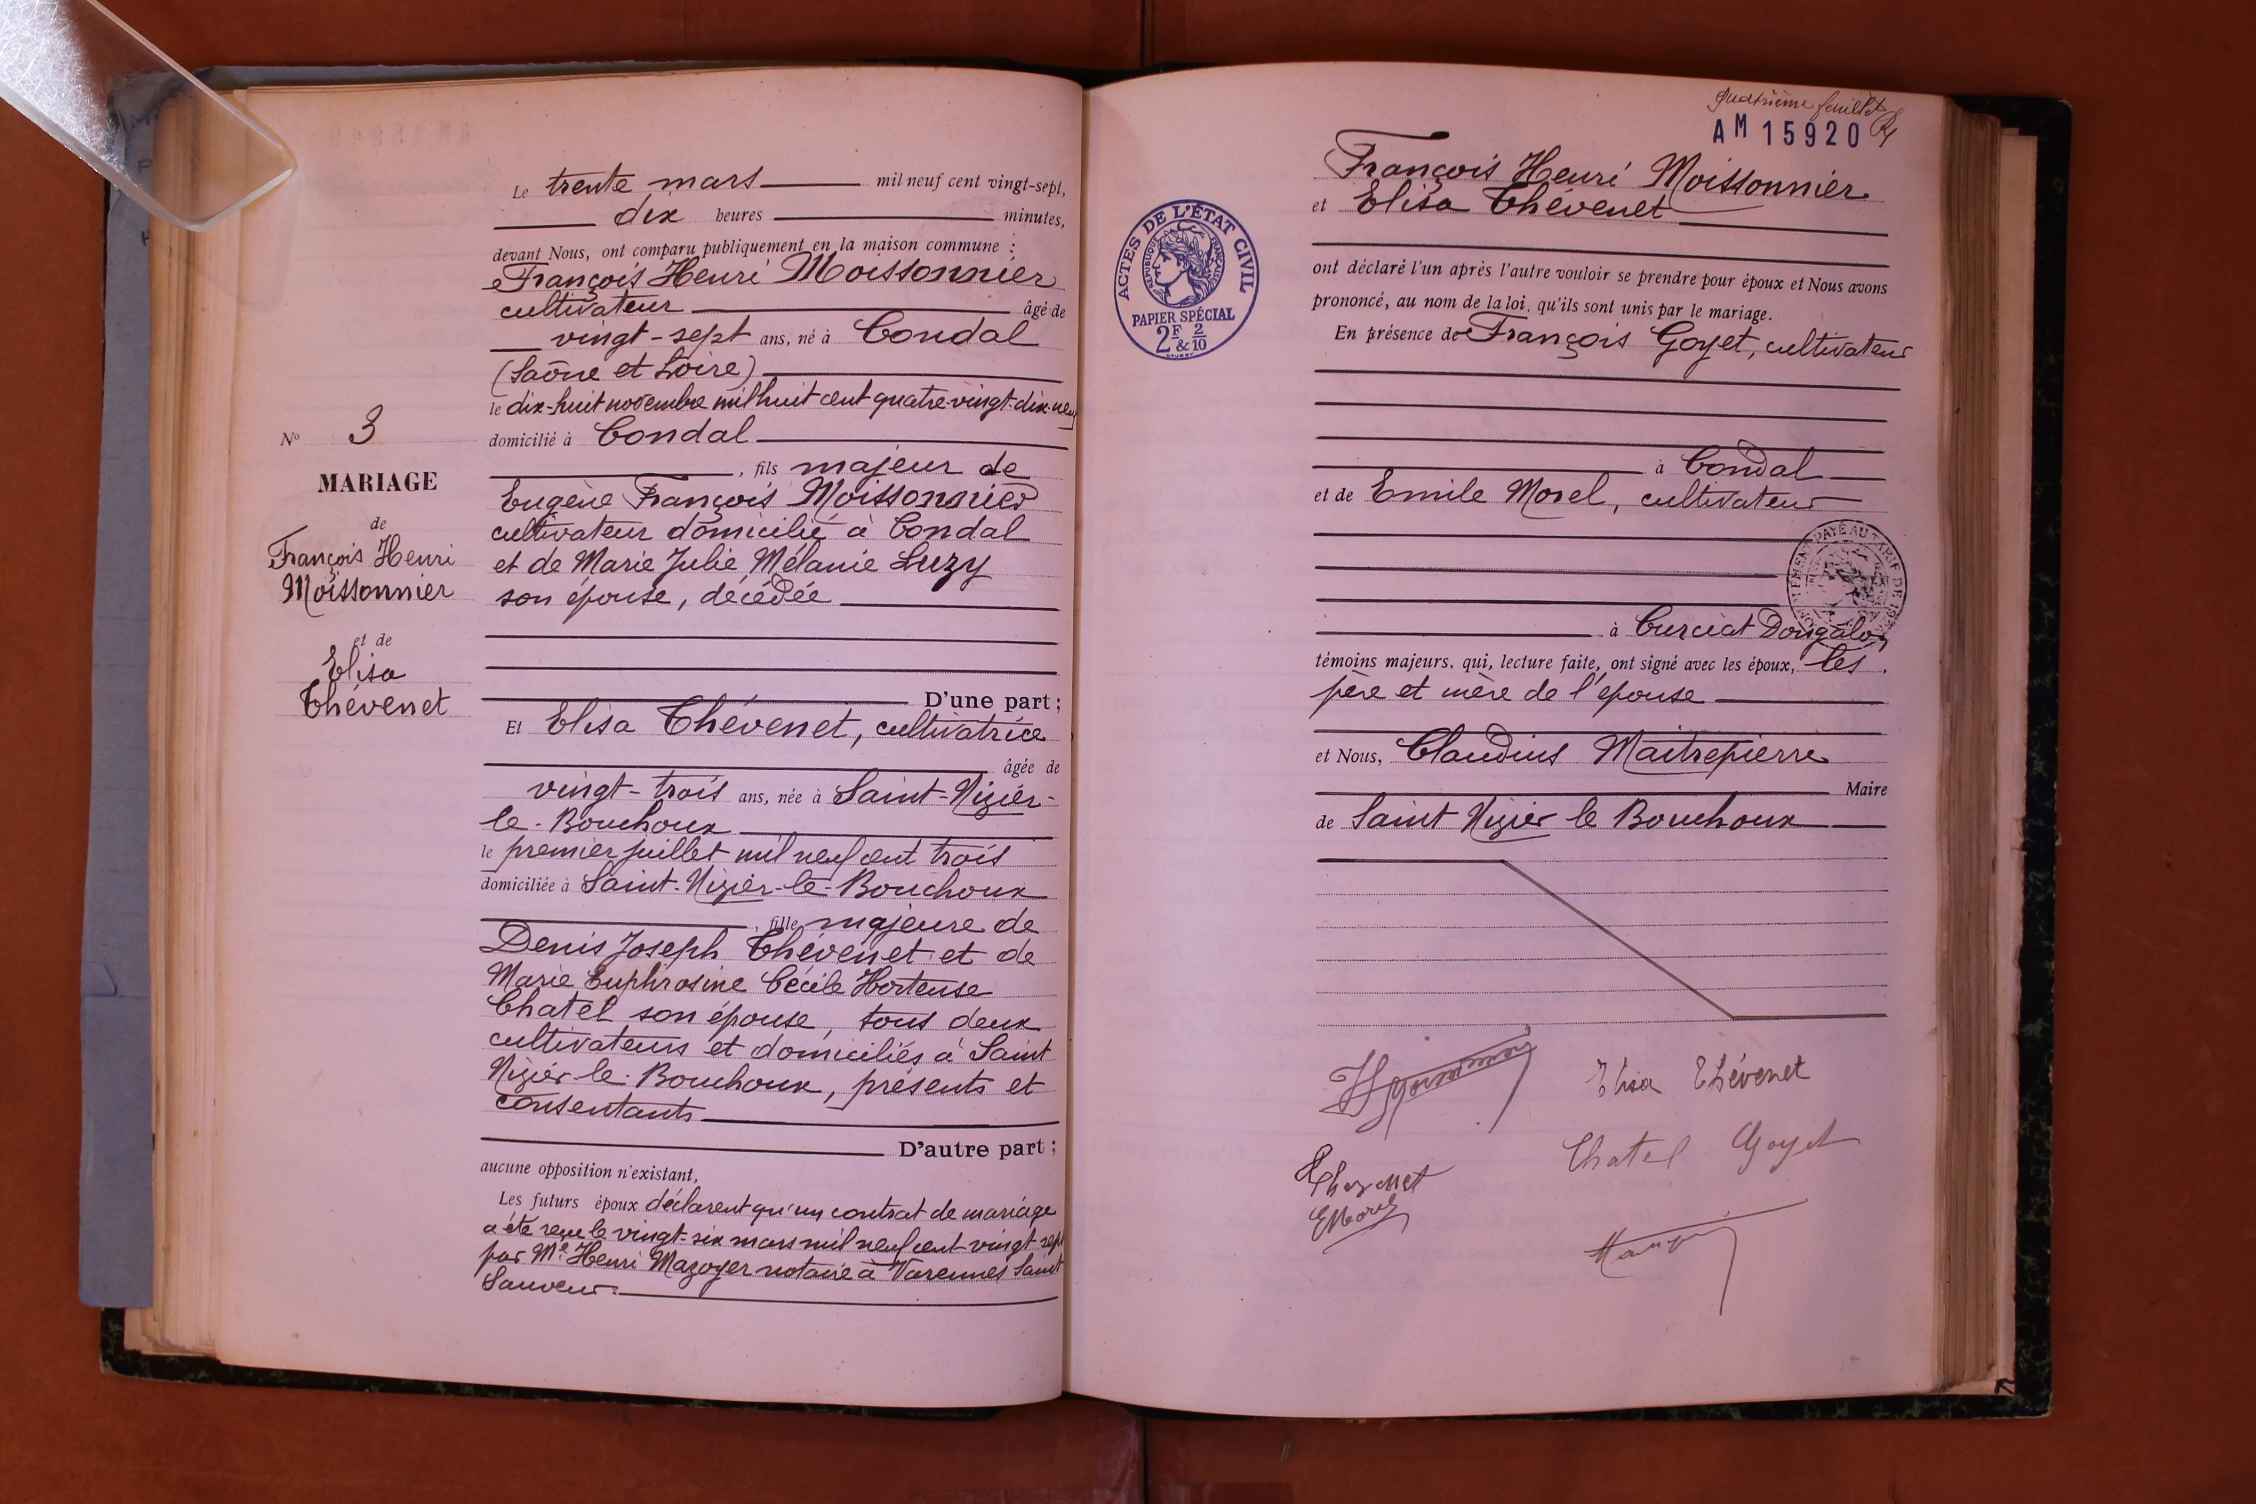 Le trente mars mil neuf cent vingt-sept,
dix heures minutes,
devant Nous, ont comparu publiquement en la maison commune :
François Henri Moissonnier
cultivateur âgé de
vingt-sept ans, né à Condal
(Saône et Loire)
le dix-huit novembre mil huit cent quatre-vingt-dix-neuf
domicilié à Condal
, fils majeur de
Eugène François Moissonnier
cultivateur domicilié à Condal
et de Marie Julie Mélanie Luzy
son épouse, décédée
D'une part ;
Et Elisa Thévenet, cultivatrice
âgée de
vingt-trois ans, née à Saint-Nizier-
le-Bouchoux
le premier juillet mil neuf cent trois
domiciliée à Saint-Nizier-le-Bouchoux
, fille majeure de
Denis Joseph Thévenet et de
Marie Euphrosine Cécile Hortense
Chatel son épouse, tous deux
cultivateurs et domiciliés à Saint
Nizier-le-Bouchoux, présents et
consentants
D'autre part ;
aucune opposition n'existant,
Les futurs époux déclarent qu'un contrat de mariage
a été reçu le vingt-six mars mil neuf cent vingt-sept
par Me Henri Mazoyer notaire à Varennes Saint
Sauveur.
No 3
MARIAGE
de
François Henri
Moissonnier
et de
Elisa
Thévenet
quatrième feuillet
AM 15920
François Henri Moissonnier
et Elisa Thévenet
ont déclaré l'un après l'autre vouloir se prendre pour époux et Nous avons
prononcé, au nom de la loi, qu'ils sont unis par le mariage.
En présence de François Goyet, cultivateur
à Condal
et de Emile Morel, cultivateur
à Curciat Dongalon
témoins majeurs, qui, lecture faite, ont signé avec les époux, les
père et mère de l'épouse
et Nous, Claudius Maitrepierre
Maire
de Saint Nizier le Bouchoux
Elisa Thévenet
Chatel Goyet
Thevenet
EMorel
ACTES DE L'ÉTAT CIVIL
RÉPUBLIQUE FRANÇAISE
PAPIER SPÉCIAL
2F & 2/10